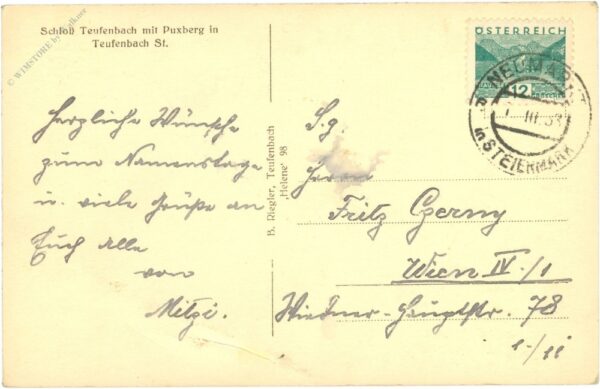 © WIMSTORE by Falkner
Schloß Teufenbach mit Puxberg in
Teufenbach St.
Herzliche Wünsche
zum Namenstage
u. viele Grüße an
Euch Alle
von
Mitzi.
B. Riegler, Teufenbach
„Helene" 98
ÖSTERREICH
12
GROSCHEN
NEUMARKT
III
STEIERMARK
S.g.
Herrn
Fritz Czerny
Wien IV/1
Wiedner-Hauptstr. 78